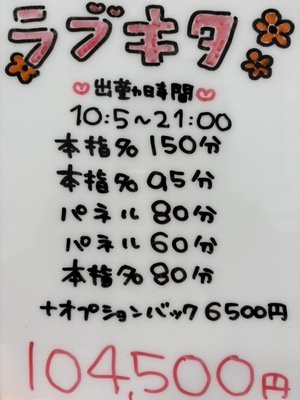 ラブキタ
出勤時間
10:5〜21:00
本指名 150分
本指名 95分
パネル 80分
パネル 60分
本指名 80分
+オプションバック 6500円
104,500円